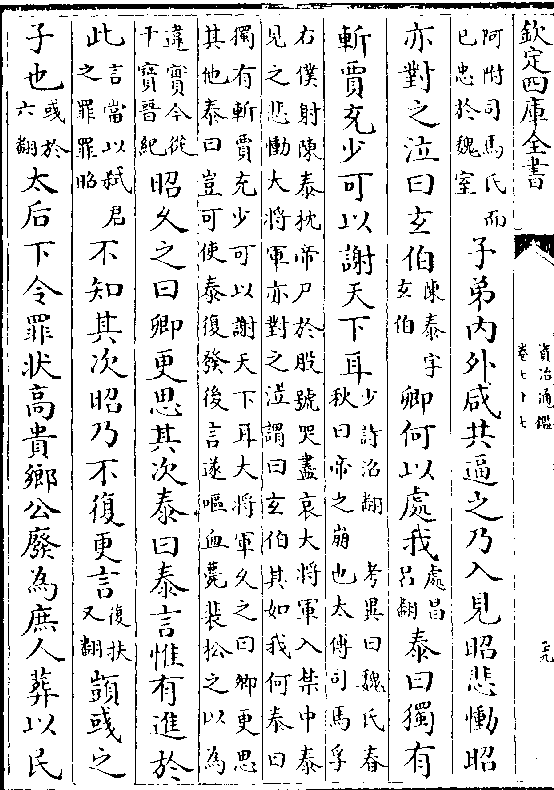 欽定四庫全書
資治通鑑
卷七十七
阿附司馬氏而
已忠於魏室
子弟内外咸共逼之乃入見昭悲慟昭
亦對之泣曰玄伯
陳泰字
玄伯
卿何以處我
處昌
呂翻
泰曰獨有
斬賈充少可以謝天下耳
少詩沼翻 考異曰魏氏春
秋曰帝之崩也太傅司馬孚
右僕射陳泰枕帝尸於股號哭盡哀大將軍入禁中泰
見之悲慟大將軍亦對之泣謂曰玄伯其如我何泰曰
獨有斬賈充少可以謝天下耳大將軍久之曰卿更思
其他泰曰豈可使泰復發後言遂嘔血薨裴松之以為
違實今從
干寶晉紀
昭久之曰卿更思其次泰曰泰言惟有進於
此
言當以弑君
之罪罪昭
不知其次昭乃不復更言
復扶
又翻
顗彧之
子也
彧於
六翻
太后下令罪状高貴鄉公廢為庶人葬以民